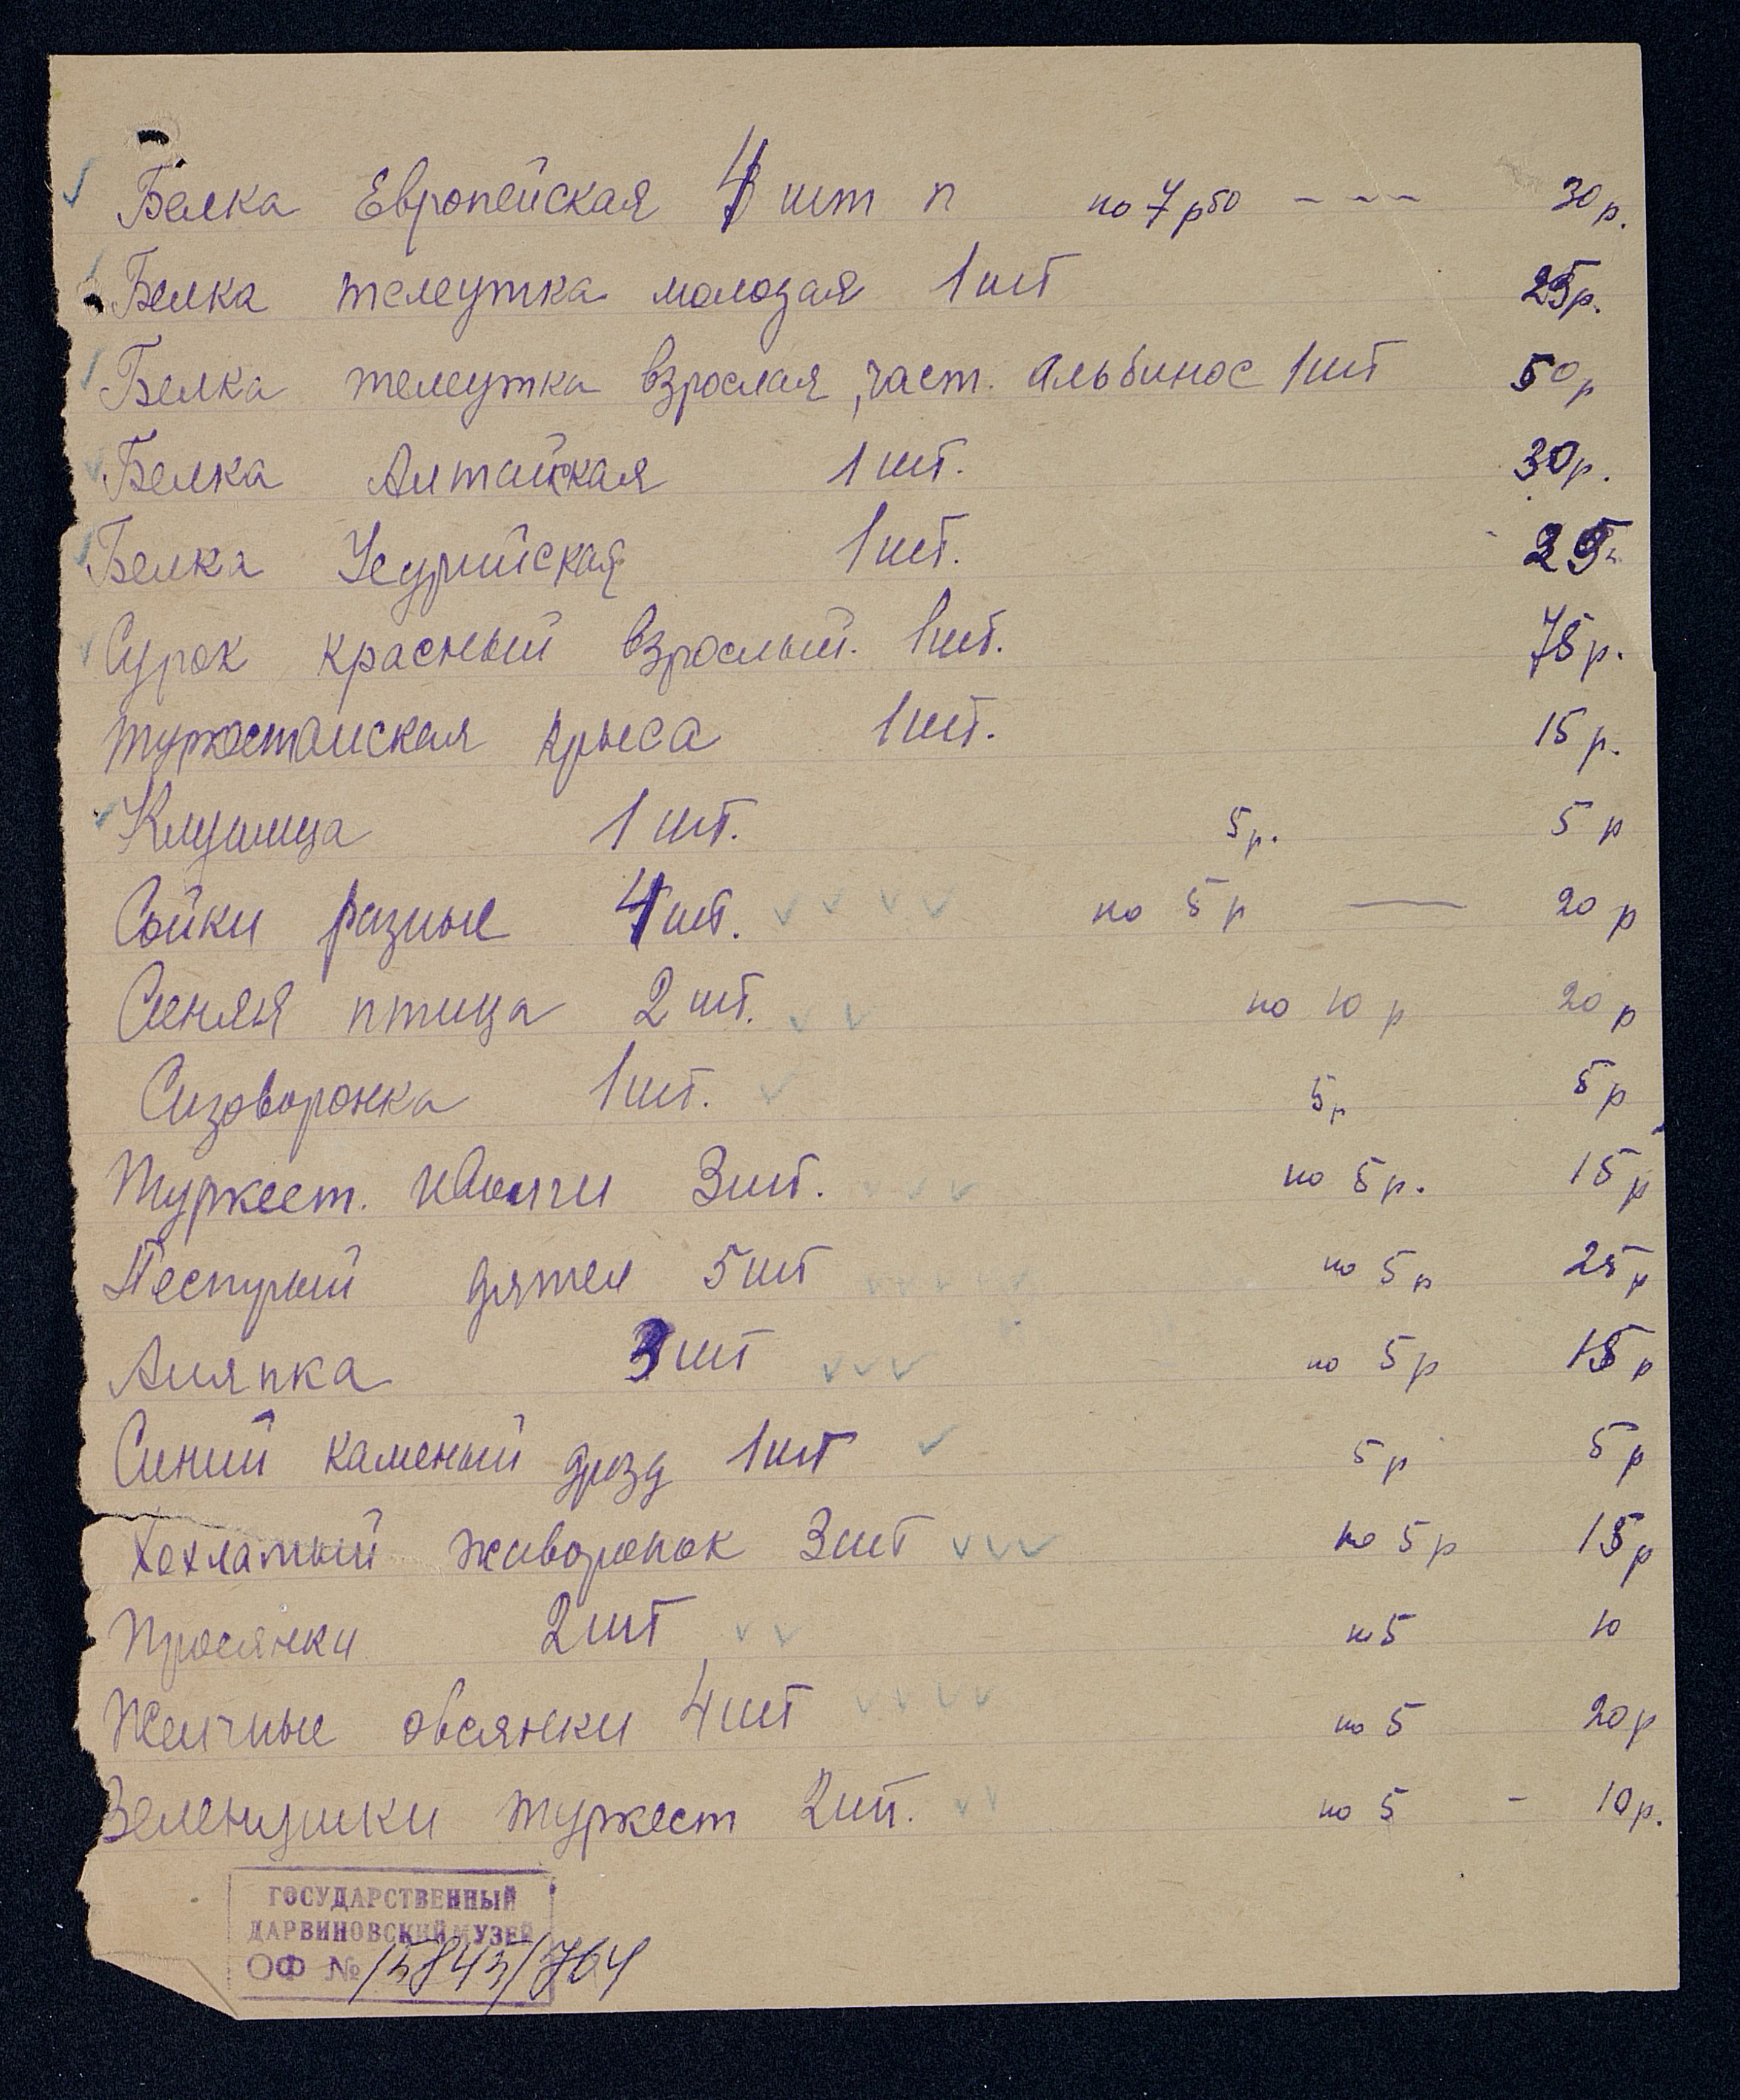 Белка Европейская 4 шт п по 7 р 50 - - - 30 р.
Белка телеутка молодая 1 шт 25 р.
Белка телеутка взрослая, част. альбинос 1 шт 50 р
Белка Алтайская 1 шт. 30 р.
Белка Усурийская 1 шт. 25
Сурок красный взрослый. 1 шт. 75 р.
туркестанская крыса 1 шт. 15 р.
Клушица 1 шт. 5 р. 5 р
Сойки разные 4 шт. по 5 р — 20 р
Синяя птица 2 шт. по 10 р 20 р
Сизоворонка 1 шт. 5 р 5 р
Туркест. иволги 3 шт. по 5 р. 15 р
Пестрый дятел 5 шт по 5 р 25 р
Аляпка 3 шт по 5 р 15 р
Синий каменый дрозд 1 шт 5 р 5 р
Хохлатый жаворонок 3 шт по 5 р 15 р
Просянки 2 шт по 5 10
Желчные овсянки 4 шт по 5 20 р
Зеленушки туркест 2 шт. по 5 - 10 р.
ГОСУДАРСТВЕННЫЙ
ДАРВИНОВСКИЙ МУЗЕЙ
ОФ № 15845/764